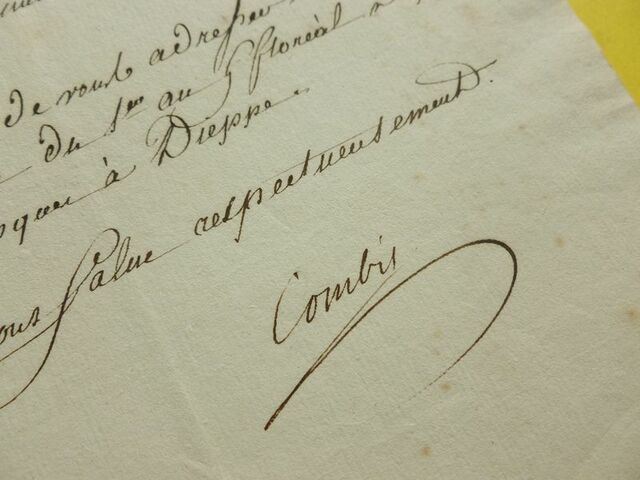 de vous adresser
du 1er au 9 floréal
à Dieppe.
vous salue respectueusement.
Combis